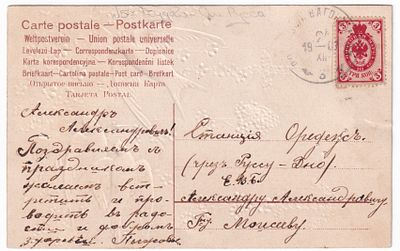 Carte postale – Postkarte
Weltpostverein – Union postale universelle
Levelező-Lap – Correspondenzkarta – Dopisnice
Karta korespondencyjna – Korespondenční lístek
Briefkaart – Cartolina postale – Post card – Brefkort
Открытое письмо – Дописна Карта
Tarjeta Postal
Александръ
Александровичъ!
Поздравляемъ съ
праздникомъ
желаемъ вст-
ретить и про-
водить въ радо-
сти и добромъ
здоровьи.
Станція Оредежъ.
(грезъ Руссу-Дно)
Е.В.Б.
Александру Александровичу
Моисеву
ВАГОН
19
3
3
ТРИ КОП.